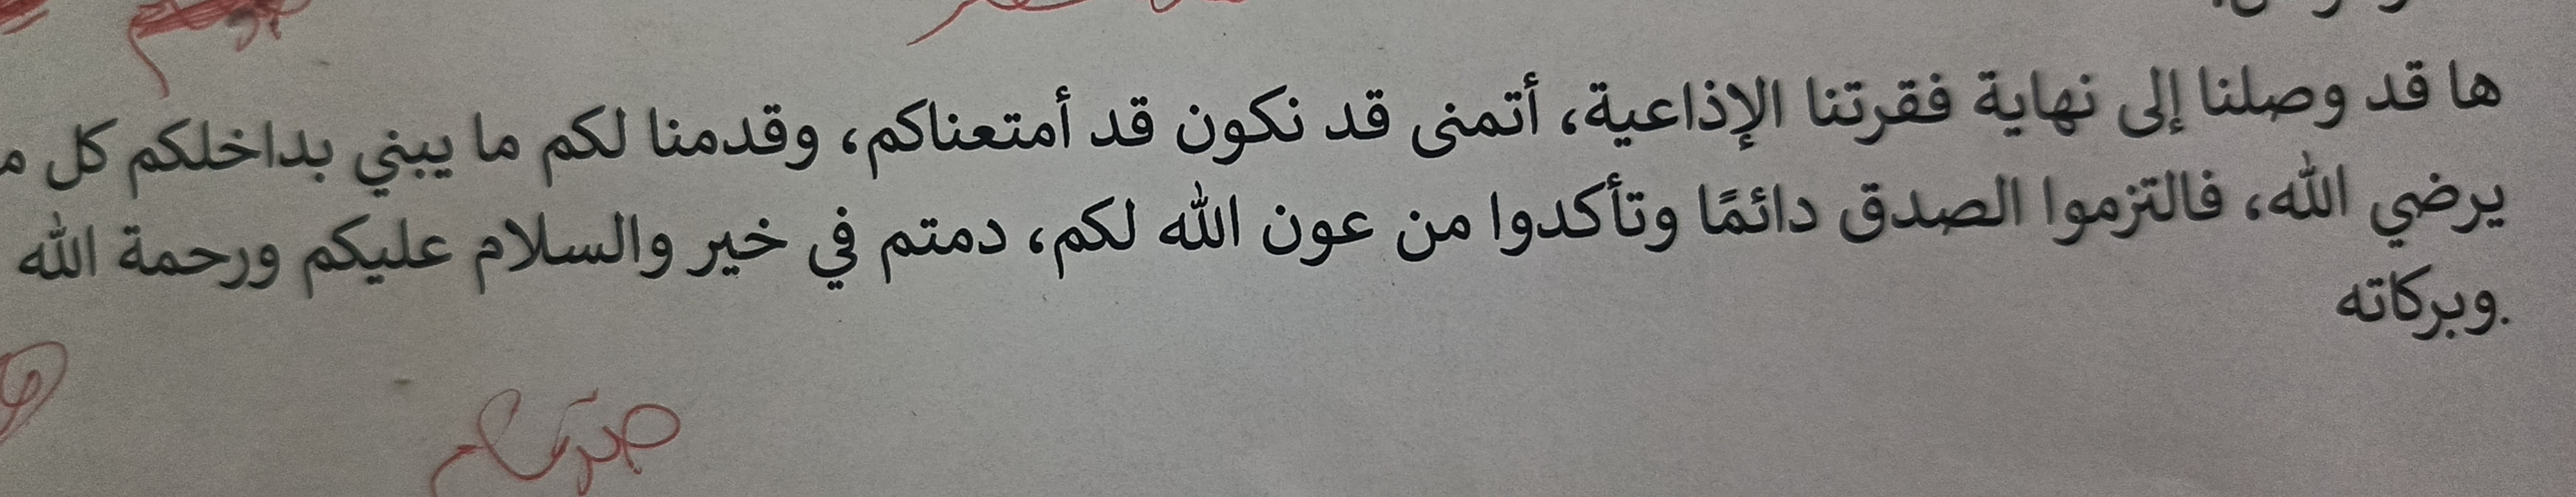 ها قد وصلنا إلى نهاية فقرتنا الإذاعية، أتمنى قد نكون قد أمتعناكم، وقدمنا لكم ما يبني بداخلكم كل
يرضي الله، فالتزموا الصدق دائمًا وتأكدوا من عون الله لكم، دمتم في خير والسلام عليكم ورحمة الله
.وبركاته